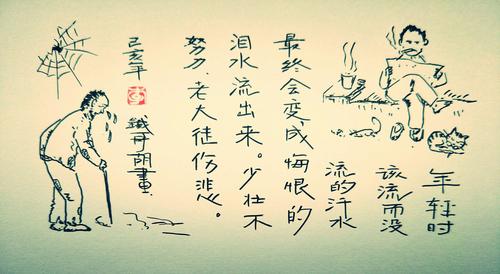 年轻时
该流而没
流的汗水
最终会变成悔恨的
泪水流出来。少壮不
努力、老大徒伤悲。
己亥年 李 鐵 朗畫